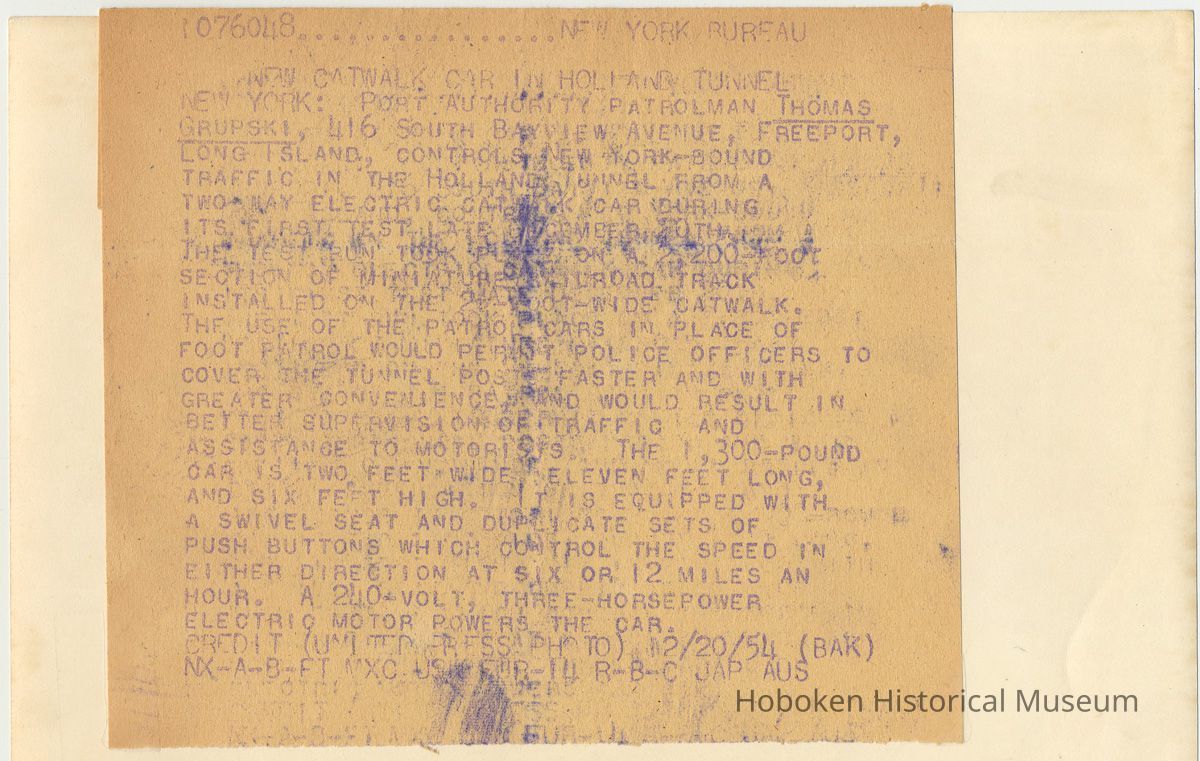 1076048................NEW YORK BUREAU
NEW CATWALK CAR IN HOLLAND TUNNEL
NEW YORK: PORT AUTHORITY PATROLMAN THOMAS
GRUPSKI, 416 SOUTH BAYVIEW AVENUE, FREEPORT,
LONG ISLAND, CONTROLS NEW YORK-BOUND
TRAFFIC IN THE HOLLAND TUNNEL FROM A
TWO-WAY ELECTRIC CATWALK CAR DURING
ITS FIRST TEST LATE DECEMBER 20TH.
THE TEST RUN TOOK PLACE ON A 2,200-FOOT
SECTION OF MINIATURE RAILROAD TRACK
INSTALLED ON THE FOOT-WIDE CATWALK.
THE USE OF THE PATROL CARS IN PLACE OF
FOOT PATROL WOULD PERMIT POLICE OFFICERS TO
COVER THE TUNNEL POSTS FASTER AND WITH
GREATER CONVENIENCE, AND WOULD RESULT IN
BETTER SUPERVISION OF TRAFFIC AND
ASSISTANCE TO MOTORISTS. THE 1,300-POUND
CAR IS TWO FEET WIDE, ELEVEN FEET LONG,
AND SIX FEET HIGH. IT IS EQUIPPED WITH
A SWIVEL SEAT AND DUPLICATE SETS OF
PUSH BUTTONS WHICH CONTROL THE SPEED IN
EITHER DIRECTION AT SIX OR 12 MILES AN
HOUR. A 240-VOLT, THREE-HORSEPOWER
ELECTRIC MOTOR POWERS THE CAR.
CREDIT (UNITED PRESS PHOTO) 12/20/54 (BAK)
NX-A-B-FT MXC USA EUR-14 R-B-C JAP AUS
Hoboken Historical Museum